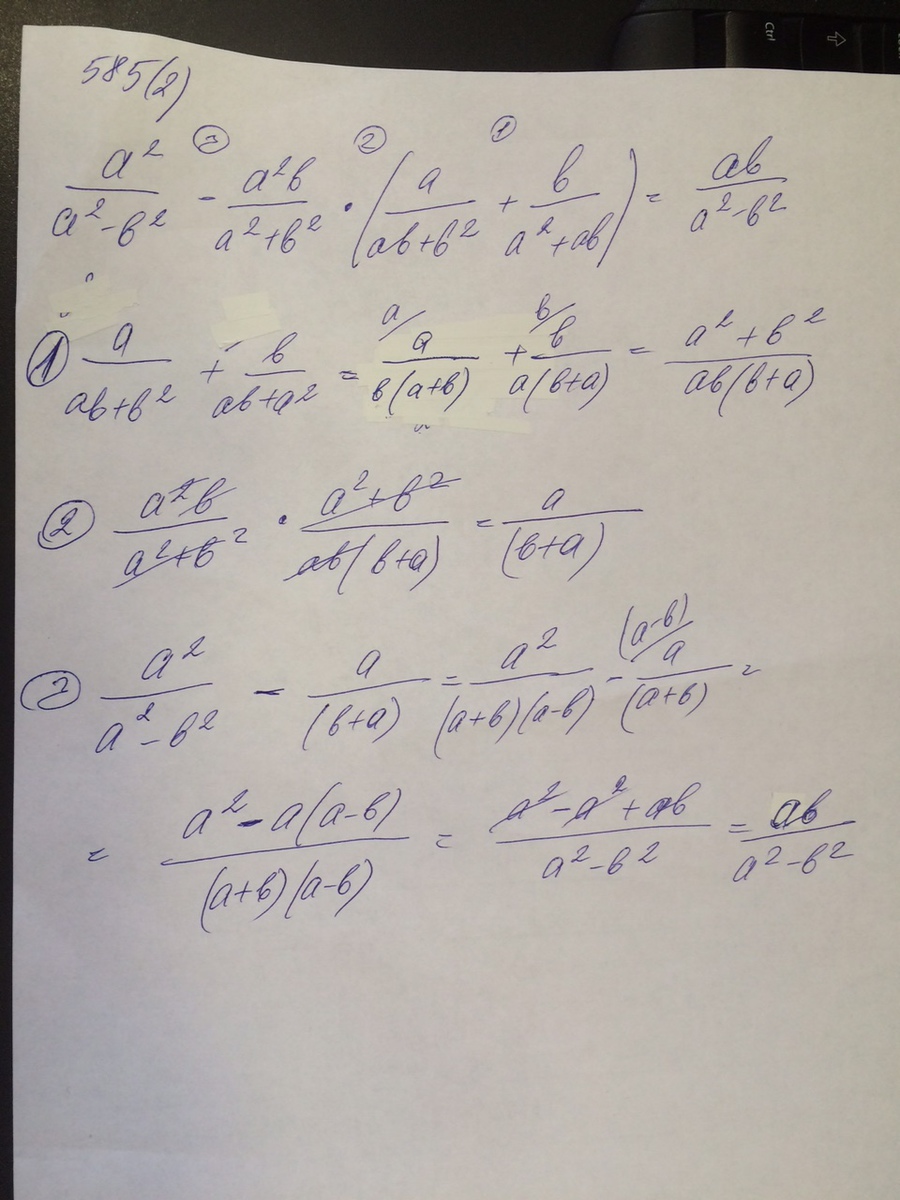 Ctrl ⇧
585(2)
③ ② ①
a²/(a²-b²) - a²b/(a²+b²) · (a/(ab+b²) + b/(a²+ab)) = ab/(a²-b²)
① a/(ab+b²) + b/(ab+a²) = a/ a/(b(a+b)) + b/ b/(a(b+a)) = (a²+b²)/(ab(b+a))
② a²b/(a²+b²) · (a²+b²)/(ab(b+a)) = a/(b+a)
③ a²/(a²-b²) - a/(b+a) = a²/((a+b)(a-b)) - (a-b)/ a/(a+b) =
= (a²-a(a-b))/((a+b)(a-b)) = (a²-a²+ab)/(a²-b²) = ab/(a²-b²)